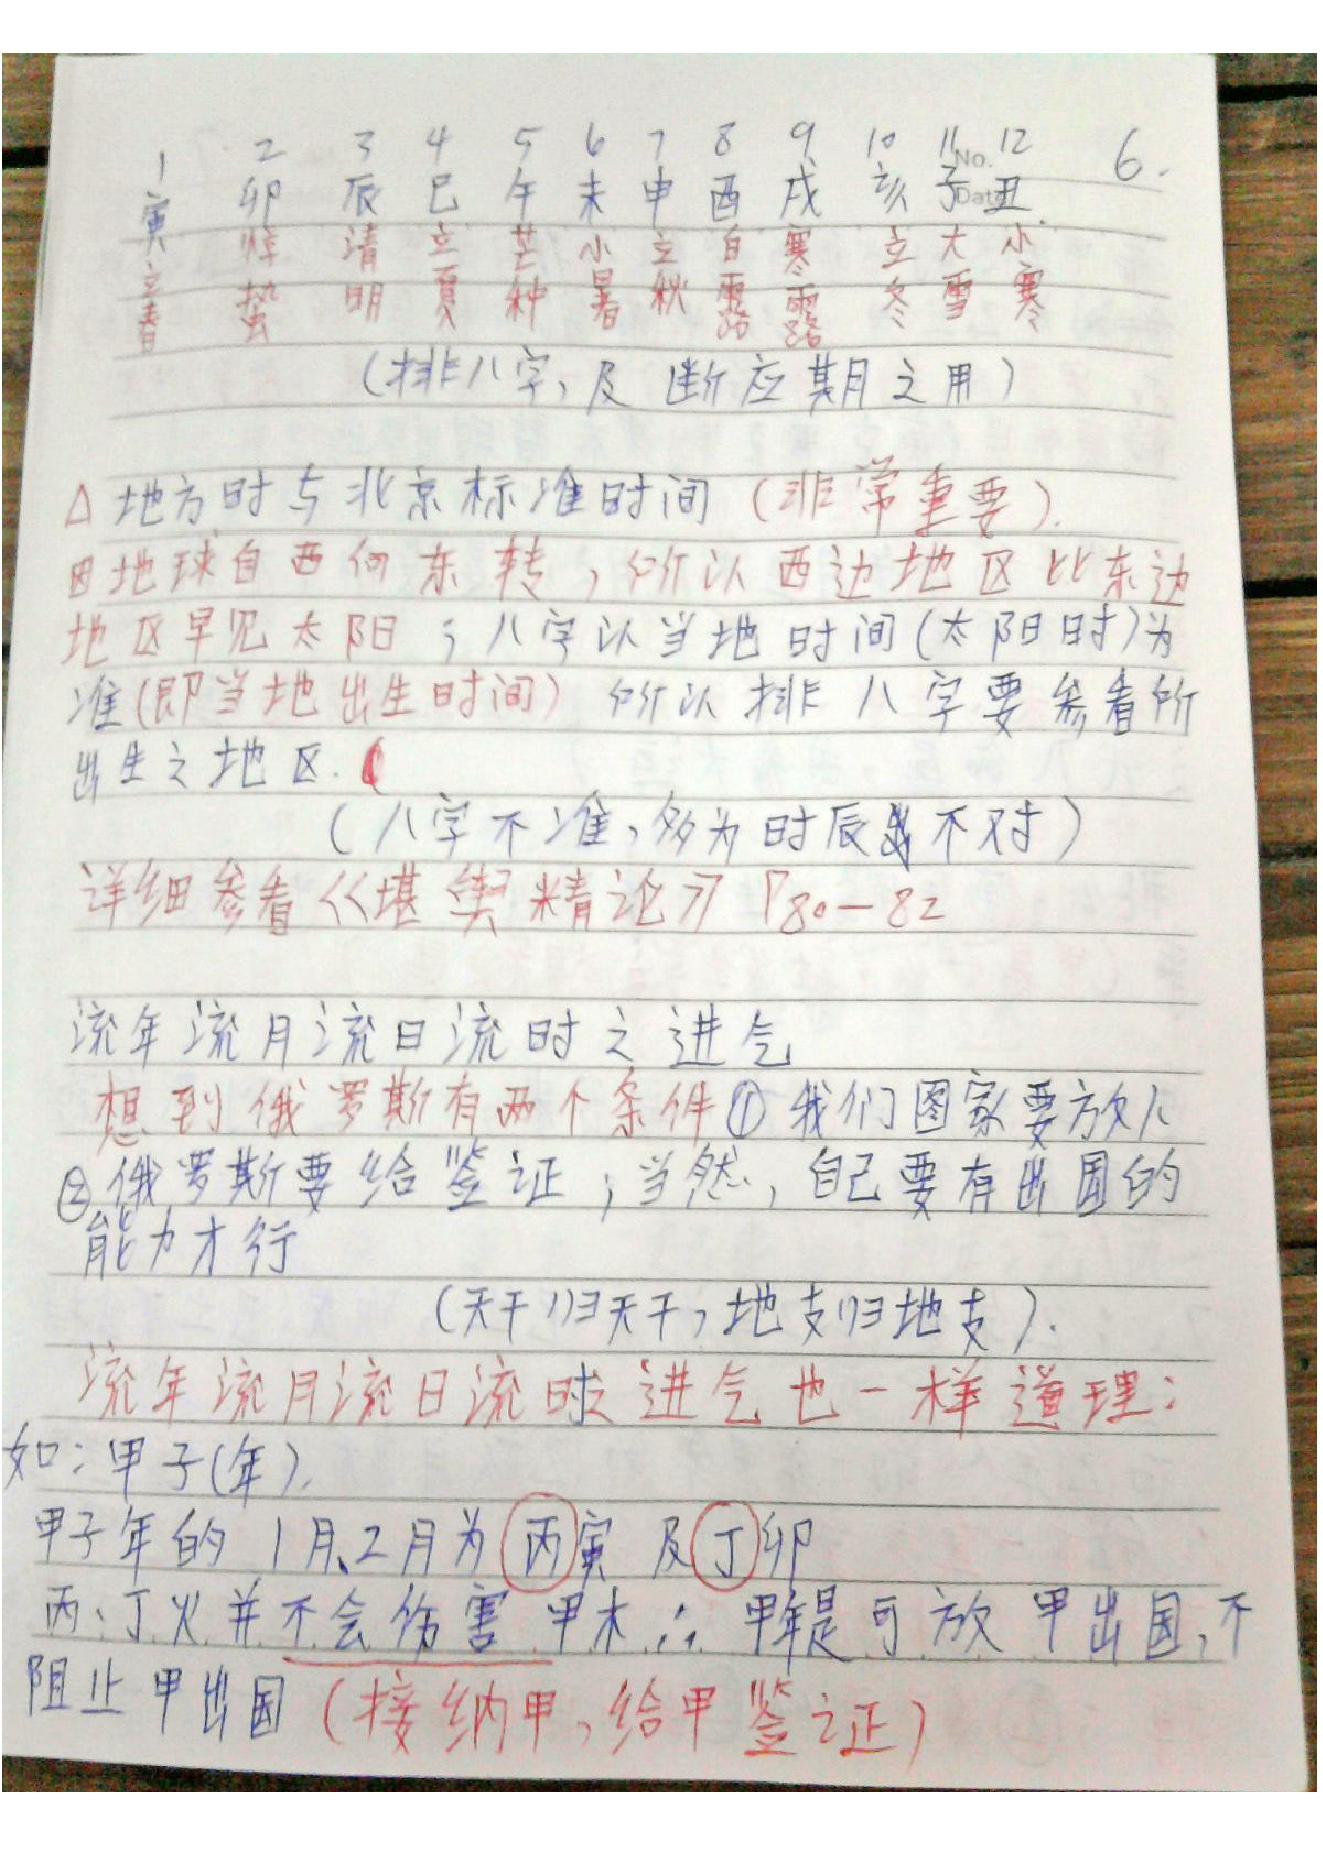 1 2 3 4 5 6 7 8 9 10 11 12 6.
No.
Date
寅 卯 辰 巳 午 未 申 酉 戌 亥 子 丑
立春 惊蛰 清明 立夏 芒种 小暑 立秋 白露 寒露 立冬 大雪 小寒
(排八字,及断应期之用)
△地方时与北京标准时间(非常重要).
因地球自西向东转,所以西边地区比东边
地区早见太阳;八字以当地时间(太阳时)为
准(即当地出生时间)所以排八字要参看所
出生之地区.
(八字不准,多为时辰不对)
详细参看《堪舆精论》P80—82
流年流月流日流时之进气
想到俄罗斯有两个条件①我们国家要放人
②俄罗斯要给签证;当然,自己要有出国的
能力才行
(天干归天干,地支归地支).
流年流月流日流时之进气也一样道理:
如:甲子(年).
甲子年的1月、2月为丙寅及丁卯
丙、丁火并不会伤害甲木∴甲年是可放甲出国,不
阻止甲出国(接纳甲,给甲签证)